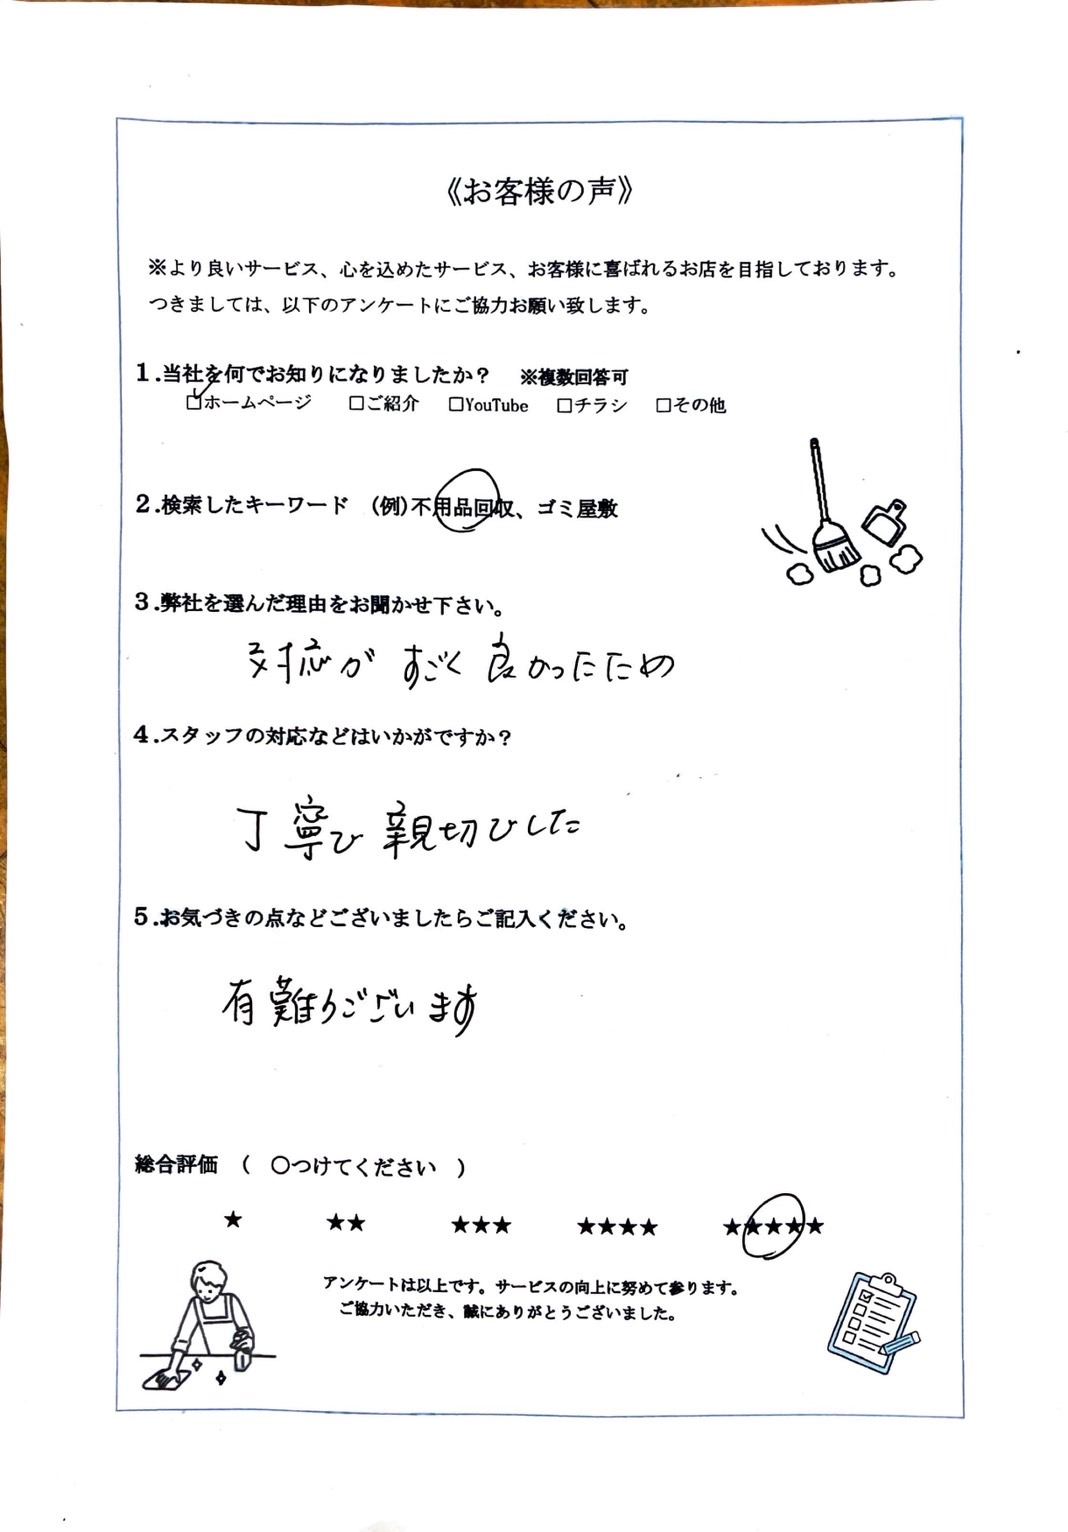 《お客様の声》
※より良いサービス、心を込めたサービス、お客様に喜ばれるお店を目指しております。
つきましては、以下のアンケートにご協力お願い致します。
1.当社を何でお知りになりましたか？　※複数回答可
☑ホームページ　□ご紹介　□YouTube　□チラシ　□その他
2.検索したキーワード　(例)不用品回収、ゴミ屋敷
3.弊社を選んだ理由をお聞かせ下さい。
対応が すごく 良かったため
4.スタッフの対応などはいかがですか？
丁寧で 親切でした
5.お気づきの点などございましたらご記入ください。
有難うございます
総合評価　(　○つけてください　)
★　★★　★★★　★★★★　★★★★★
アンケートは以上です。サービスの向上に努めて参ります。
ご協力いただき、誠にありがとうございました。